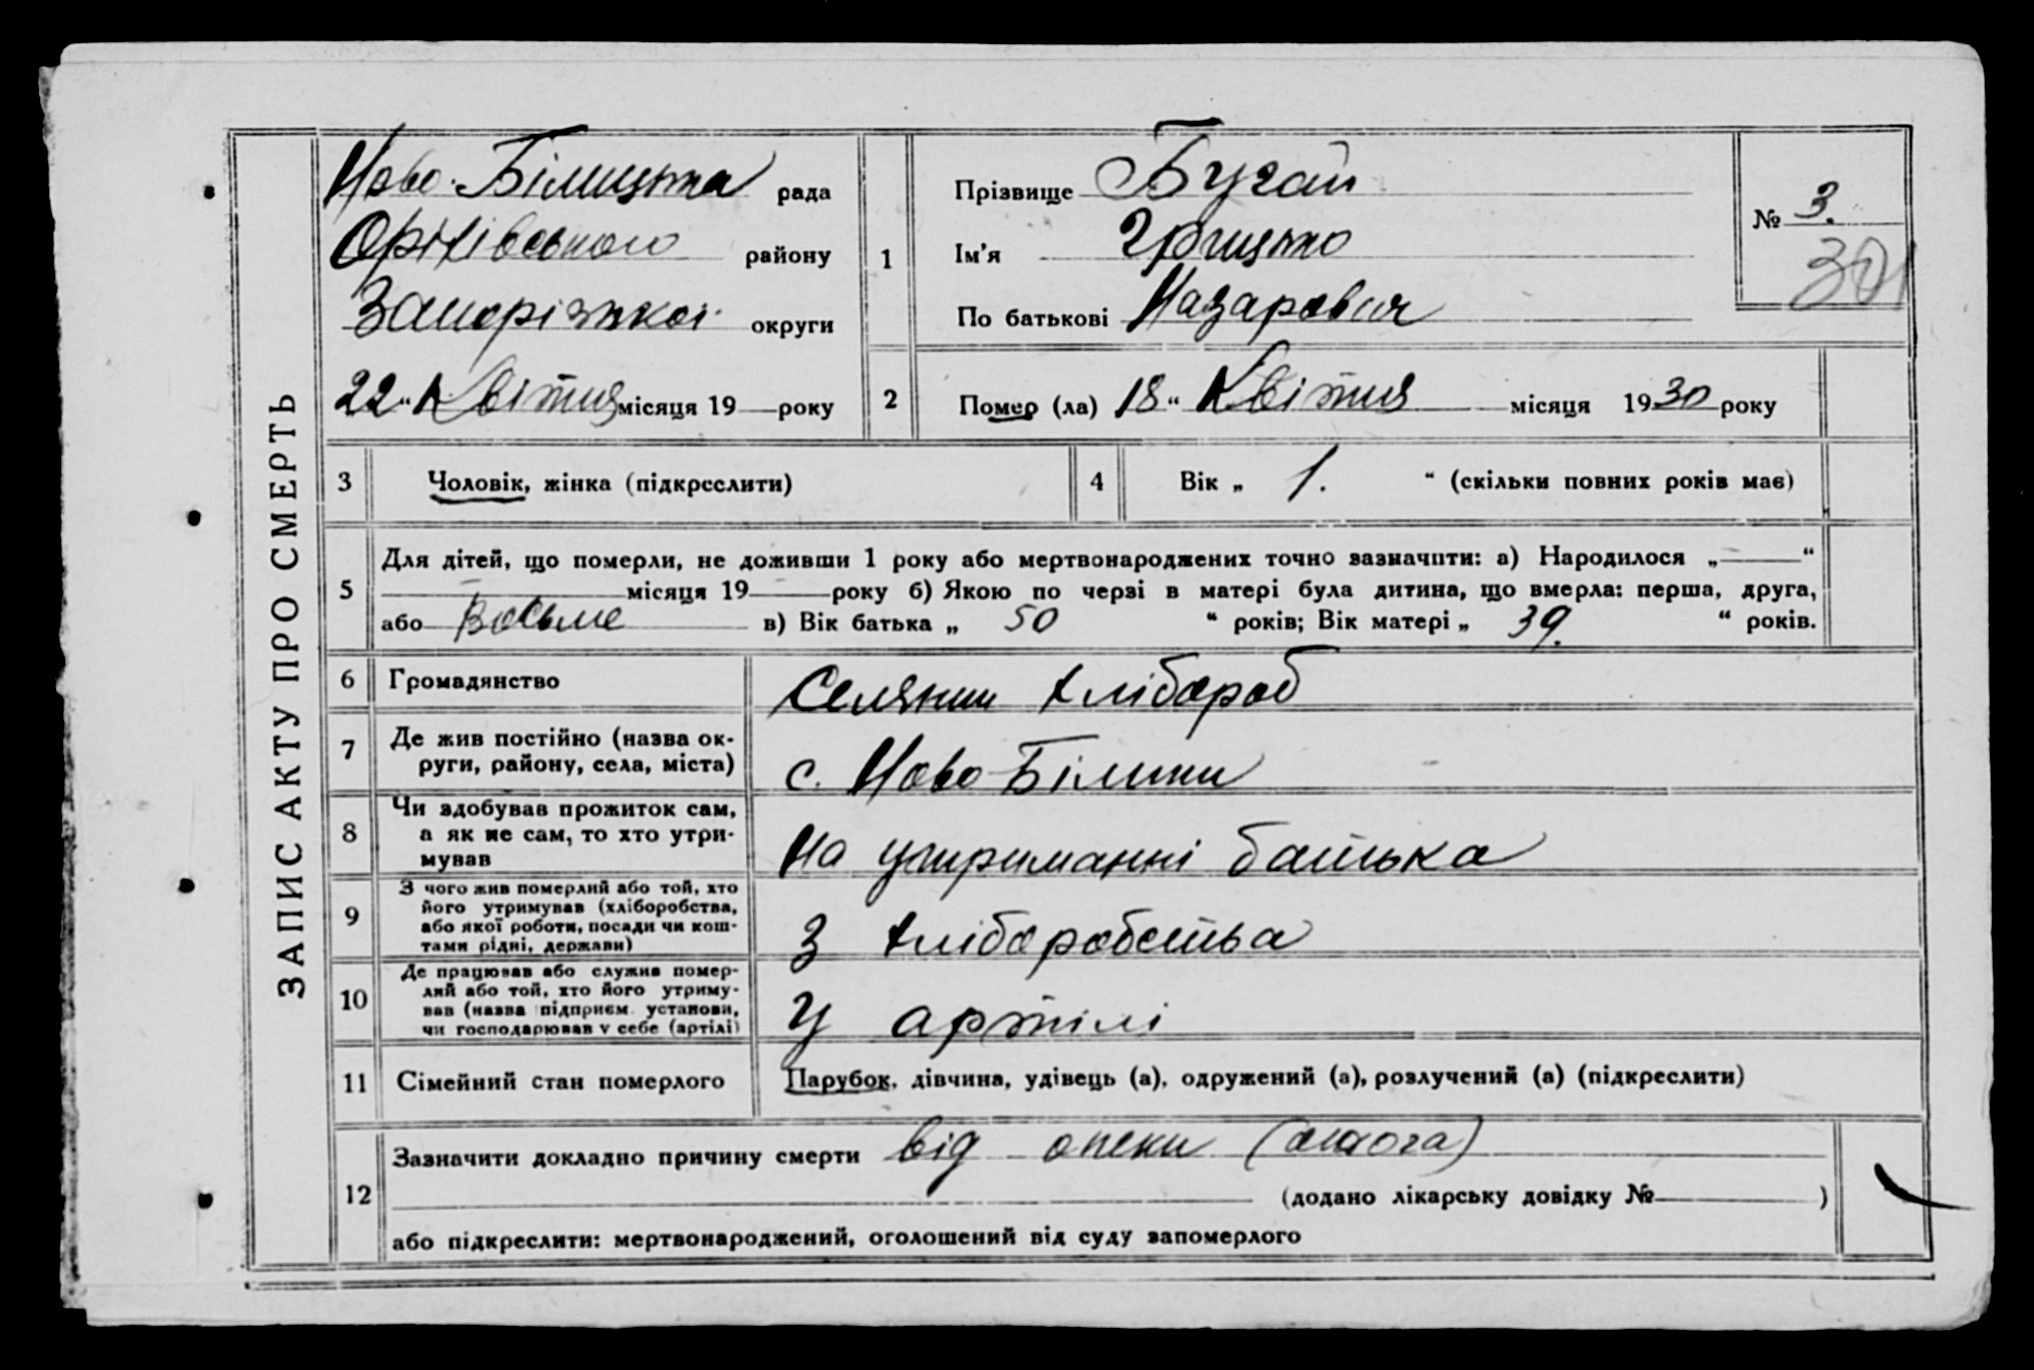 ЗАПИС АКТУ ПРО СМЕРТЬ
Ново-Білицька рада
Оріхівського району
Запорізької округи
22 “ Квітня місяця 19 — року
1
Прізвище Бугай
Ім'я Грицько
По батькові Назарович
№ 3.
301
2
Помер (ла) 18 “ Квітня місяця 1930 року
3
Чоловік, жінка (підкреслити)
4
Вік „ 1. “ (скільки повних років має)
5
Для дітей, що померли, не доживши 1 року або мертвонароджених точно зазначити: а) Народилося „ — “
— місяця 19 — року б) Якою по черзі в матері була дитина, що вмерла: перша, друга,
або Восьме в) Вік батька „ 50 “ років; Вік матері „ 39. “ років.
6
Громадянство
Селянин хлібороб
7
Де жив постійно (назва ок-
руги, району, села, міста)
с. Ново-Білики
8
Чи здобував прожиток сам,
а як не сам, то хто утри-
мував
На утриманні батька
9
З чого жив померлий або той, хто
його утримував (хліборобства,
або якої роботи, посади чи кош-
тами рідні, держави)
З хліборобства
10
Де працював або служив помер-
лий або той, хто його утриму-
вав (назва підприєм. установи,
чи господарював у себе (артілі)
У артілі
11
Сімейний стан померлого
Парубок, дівчина, удівець (а), одружений (а), розлучений (а) (підкреслити)
12
Зазначити докладно причину смерти від опеки
(додано лікарську довідку № — )
або підкреслити: мертвонароджений, оголошений від суду запомерлого